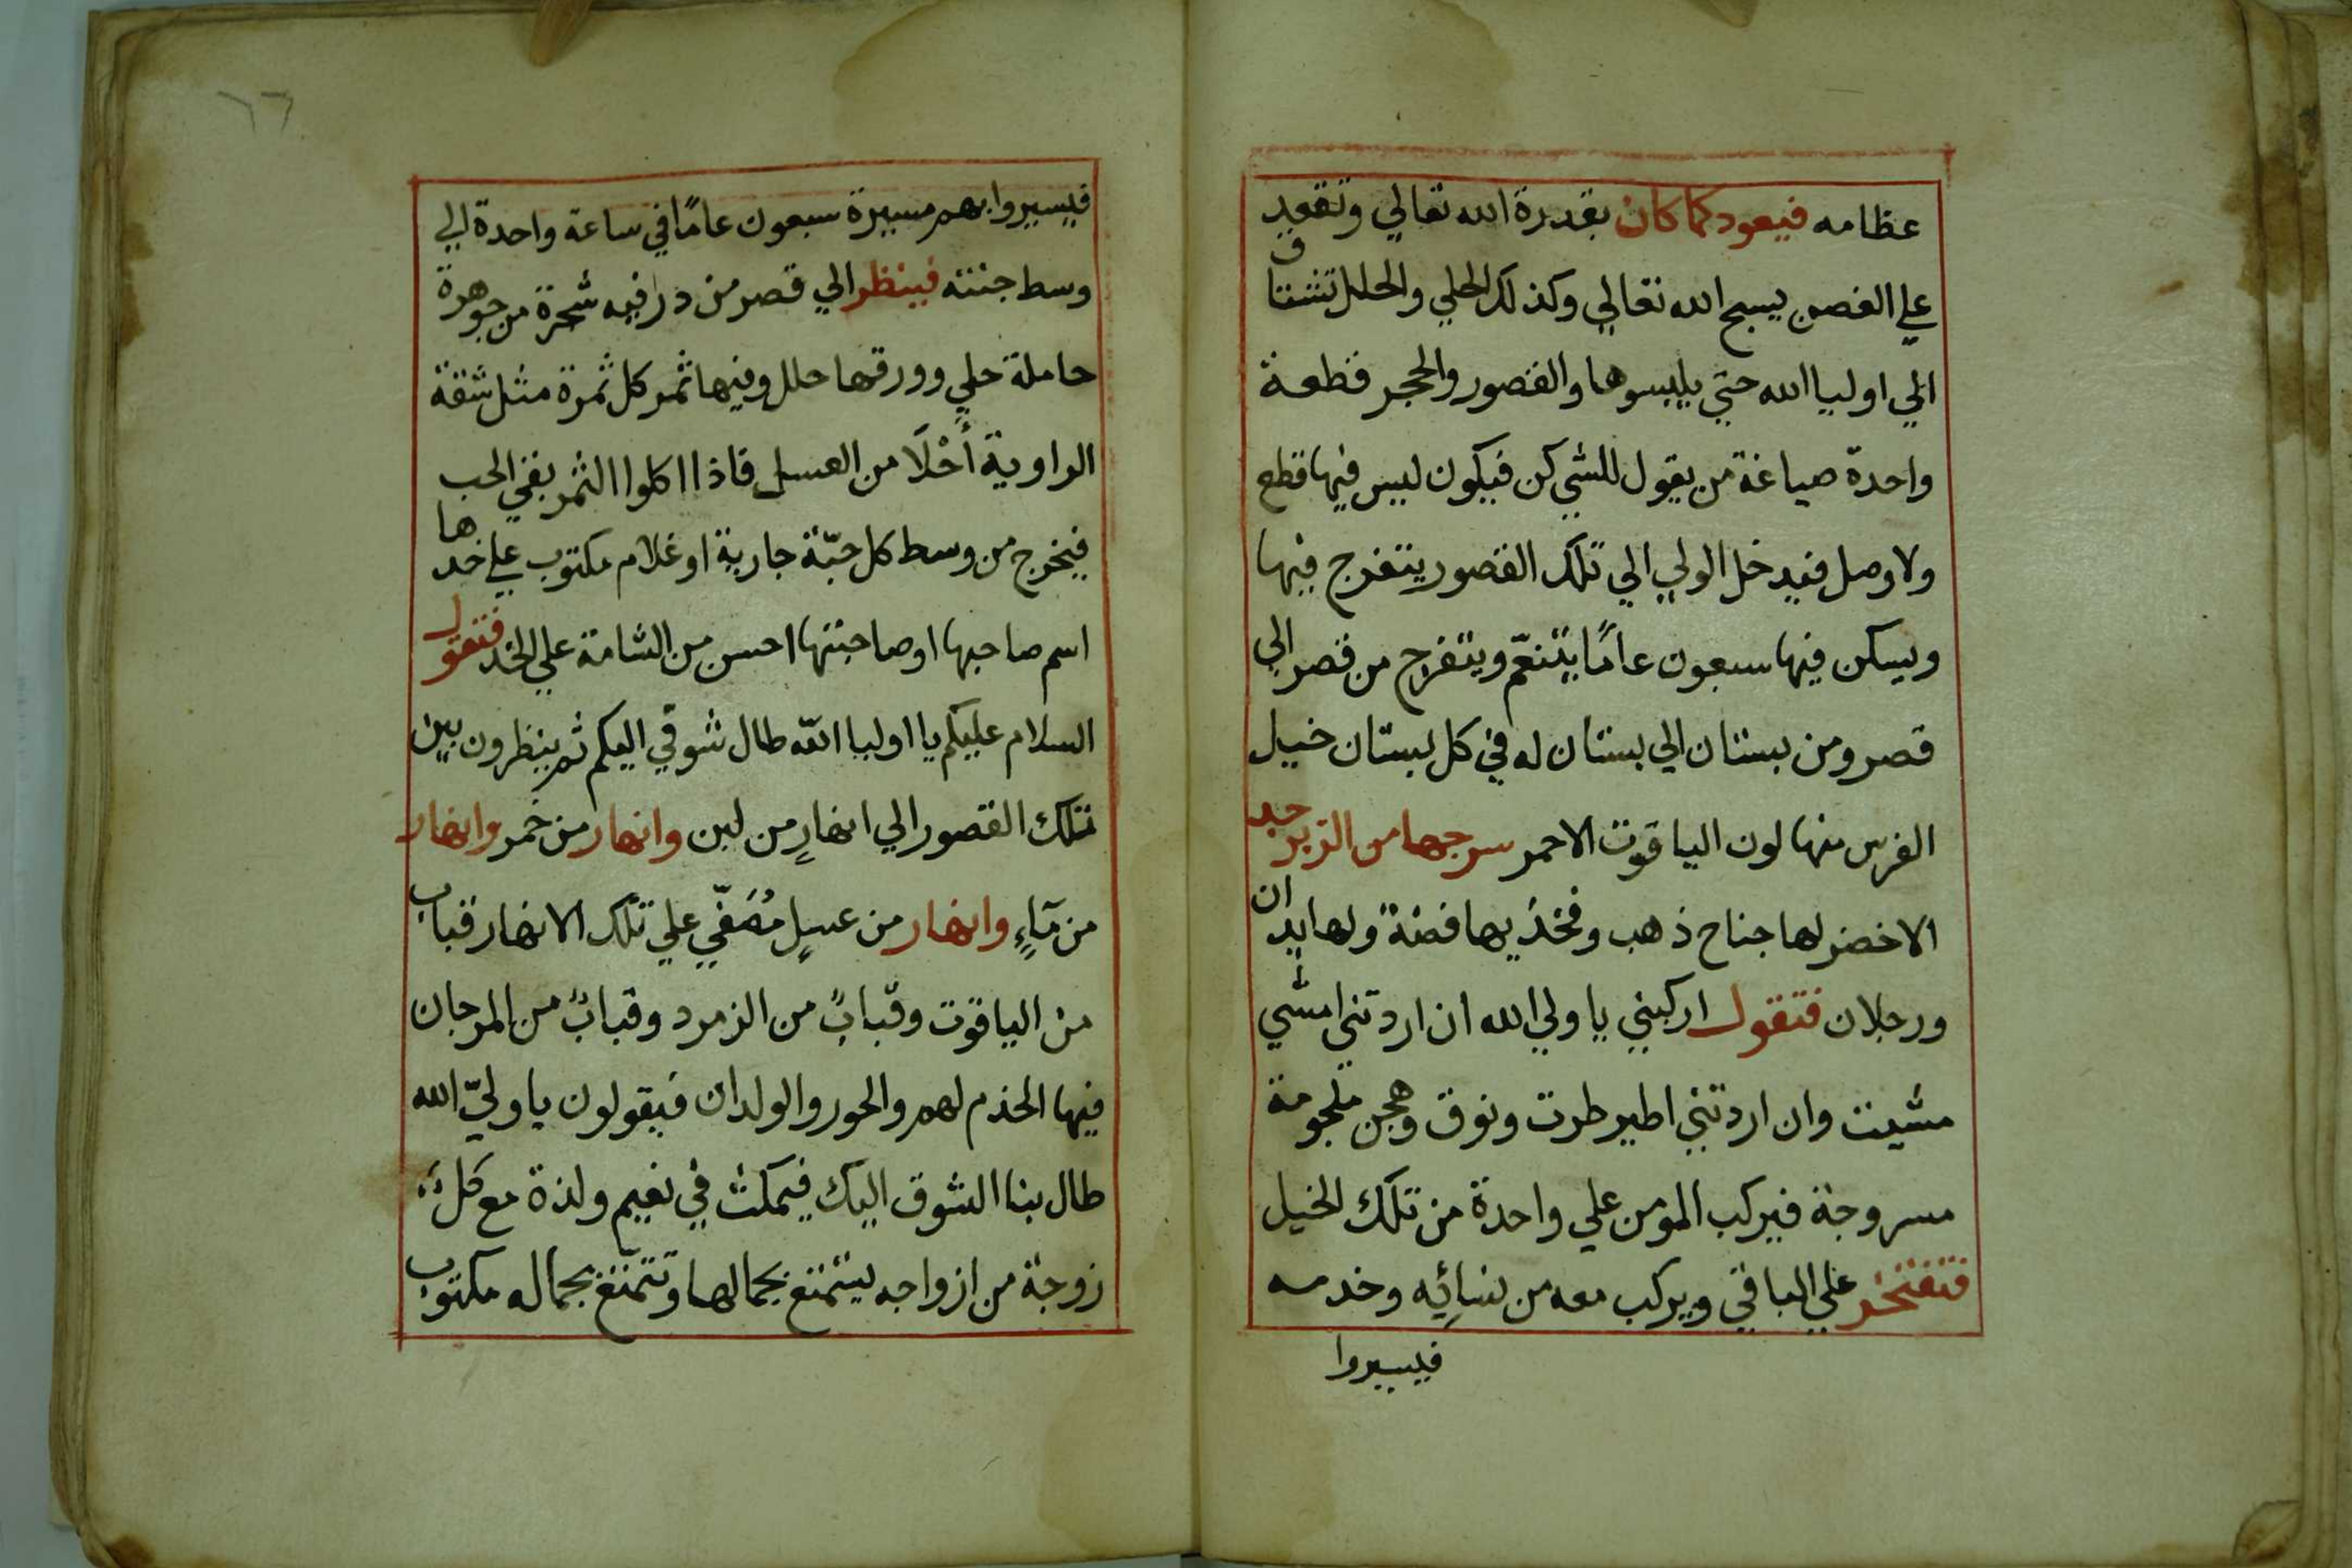 عظامه فيعود كما كان بقدرة الله تعالي وتقعد
علي الغصن يسبح الله تعالي وكذلك الحلي والحلل تشتاق
الي اوليا الله حتي يلبسوها والقصور والحجر قطعة
واحدة صياغة من يقول للشي كن فيكون ليس فيها قطع
ولا وصل فيدخل الولي الي تلك القصور يتفرج فيها
ويسكن فيها سبعون عامًا يتنعّم ويتفرج من قصر الي
قصر ومن بستان الي بستان له في كل بستان خيل
الفرس منها لون الياقوت الاحمر سرجها من الزبرجد
الاخضر لها جناح ذهب وفخذيها فضة ولها يدان
ورجلان فتقول اركبني يا ولي الله ان اردتني امشي
مشيت وان اردتني اطير طرت ونوق وهجن ملجومة
مسروجة فيركب المومن علي واحدة من تلك الخيل
فتفتخر علي الباقي ويركب معه من نسائِه وخدمه
فيسيروا
٦٦
فيسيروا بهم مسيرة سبعون عامًا في ساعة واحدة الي
وسط جنته فينظر الي قصر من در فيه شجرة من جوهرة
حاملة حلي وورقها حلل وفيها ثمر كل ثمرة مثل شقة
الراوية أَحْلَا من العسل فاذا اكلوا الثمر بقي الحب
فيخرج من وسط كل حبّة جارية او غلام مكتوب علي خدها
اسم صاحبها او صاحبتها احسن من الشامة علي الخد فتقول
السلام عليكم يا اوليا الله طال شوقي اليكم ثم ينظرون بين
تلك القصور الي انهارٍ من لبن وانهار من خمر وانهار
من مَآءٍ وانهار من عسلٍ مُصَفّي علي تلك الانهار قباب
من الياقوت وقبابٌ من الزمرد وقبابٌ من المرجان
فيها الخدم لهم والحور والولدان فيقولون يا وليّ الله
طال بنا الشوق اليك فيمكث في نعيم ولذة مع كل
زوجة من ازواجه يتمتع بجمالها وتتمتّع بجماله مكتوب